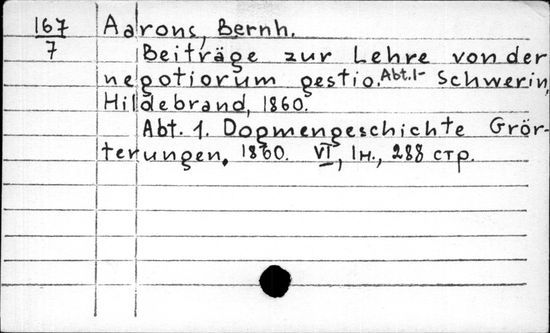 167/7 Aarons, Bernh.
Beiträge zur Lehre von der
negotiorum gestio. Abt. 1- Schwerin,
Hildebrand, 1860.
Abt. 1. Dogmengeschichte Grör-
terungen. 1860. VI, 1н., 288 стр.